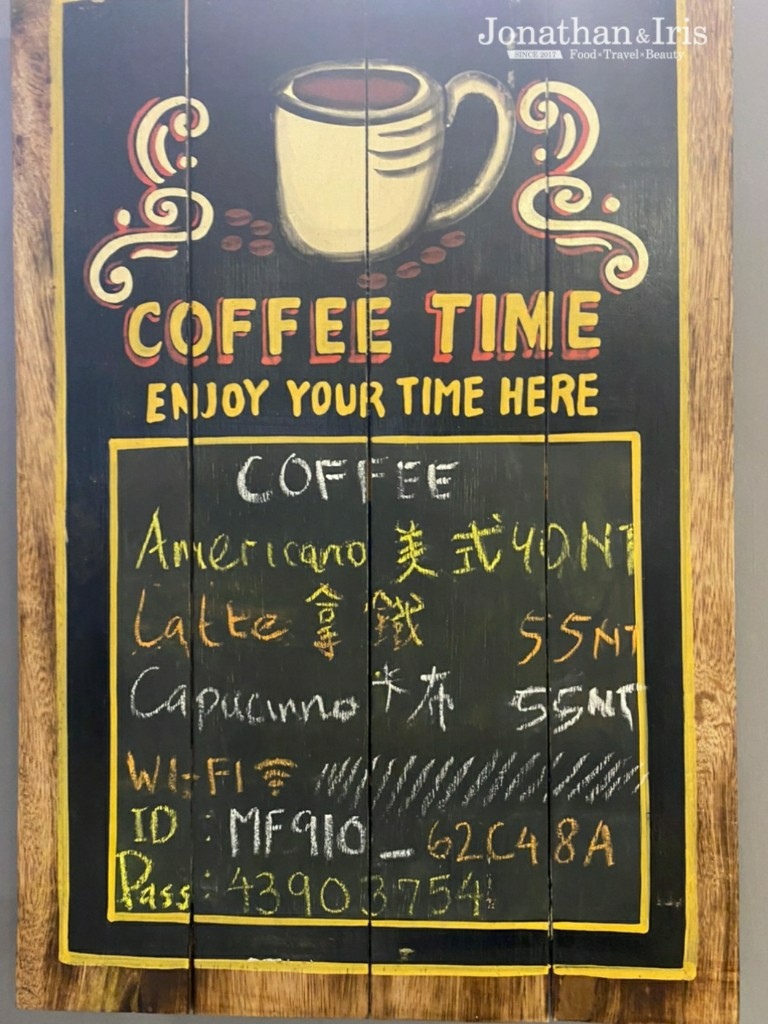 Jonathan & Iris
SINCE 2017 Food×Travel×Beauty
COFFEE TIME
ENJOY YOUR TIME HERE
COFFEE
Americano 美式 40NT
Latte 拿鐵 55NT
Capucinno 卡布 55NT
WI-FI
ID : MF910_62C48A
Pass : 43903754